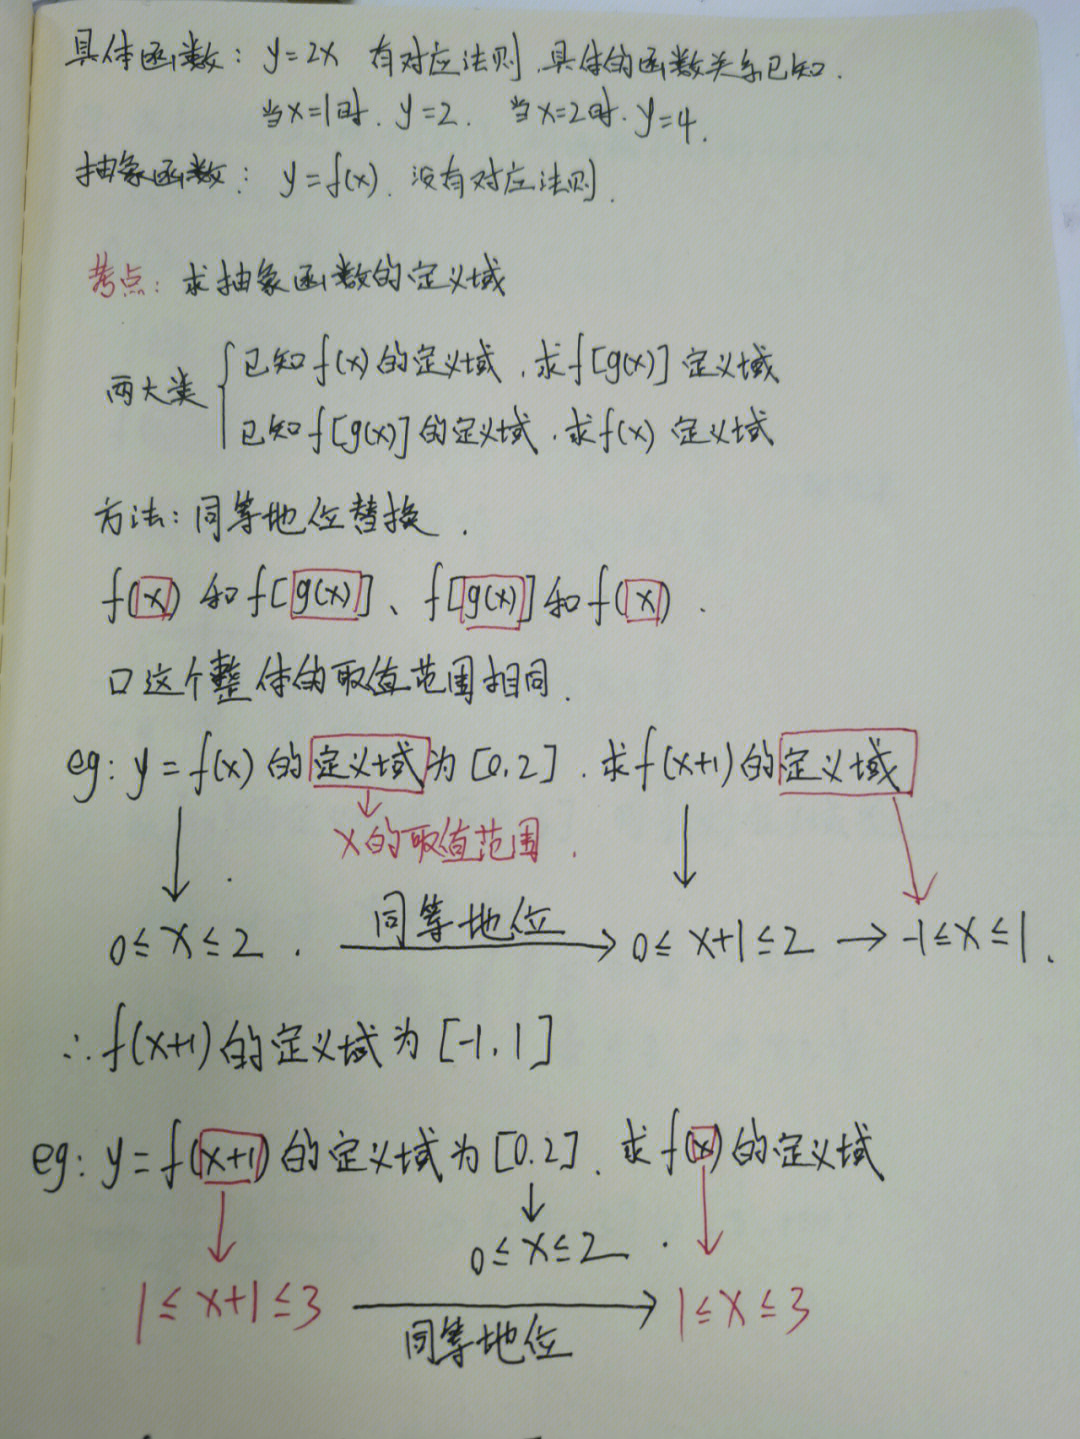 具体函数：y=2x 有对应法则.具体的函数关系已知.
当x=1时.y=2. 当x=2时.y=4.
抽象函数：y=f(x).没有对应法则.
考点：求抽象函数的定义域
两大类
已知f(x)的定义域.求f[g(x)]定义域
已知f[g(x)]的定义域.求f(x)定义域
方法：同等地位替换.
f(x)和f[g(x)]、f[g(x)]和f(x).
口这个整体的取值范围相同.
eg：y=f(x)的定义域为[0.2].求f(x+1)的定义域
x的取值范围.
0≤x≤2. 同等地位 0≤x+1≤2→-1≤x≤1.
∴f(x+1)的定义域为[-1.1]
eg：y=f(x+1)的定义域为[0.2].求f(x)的定义域
0≤x≤2.
1≤x+1≤3 同等地位 1≤x≤3